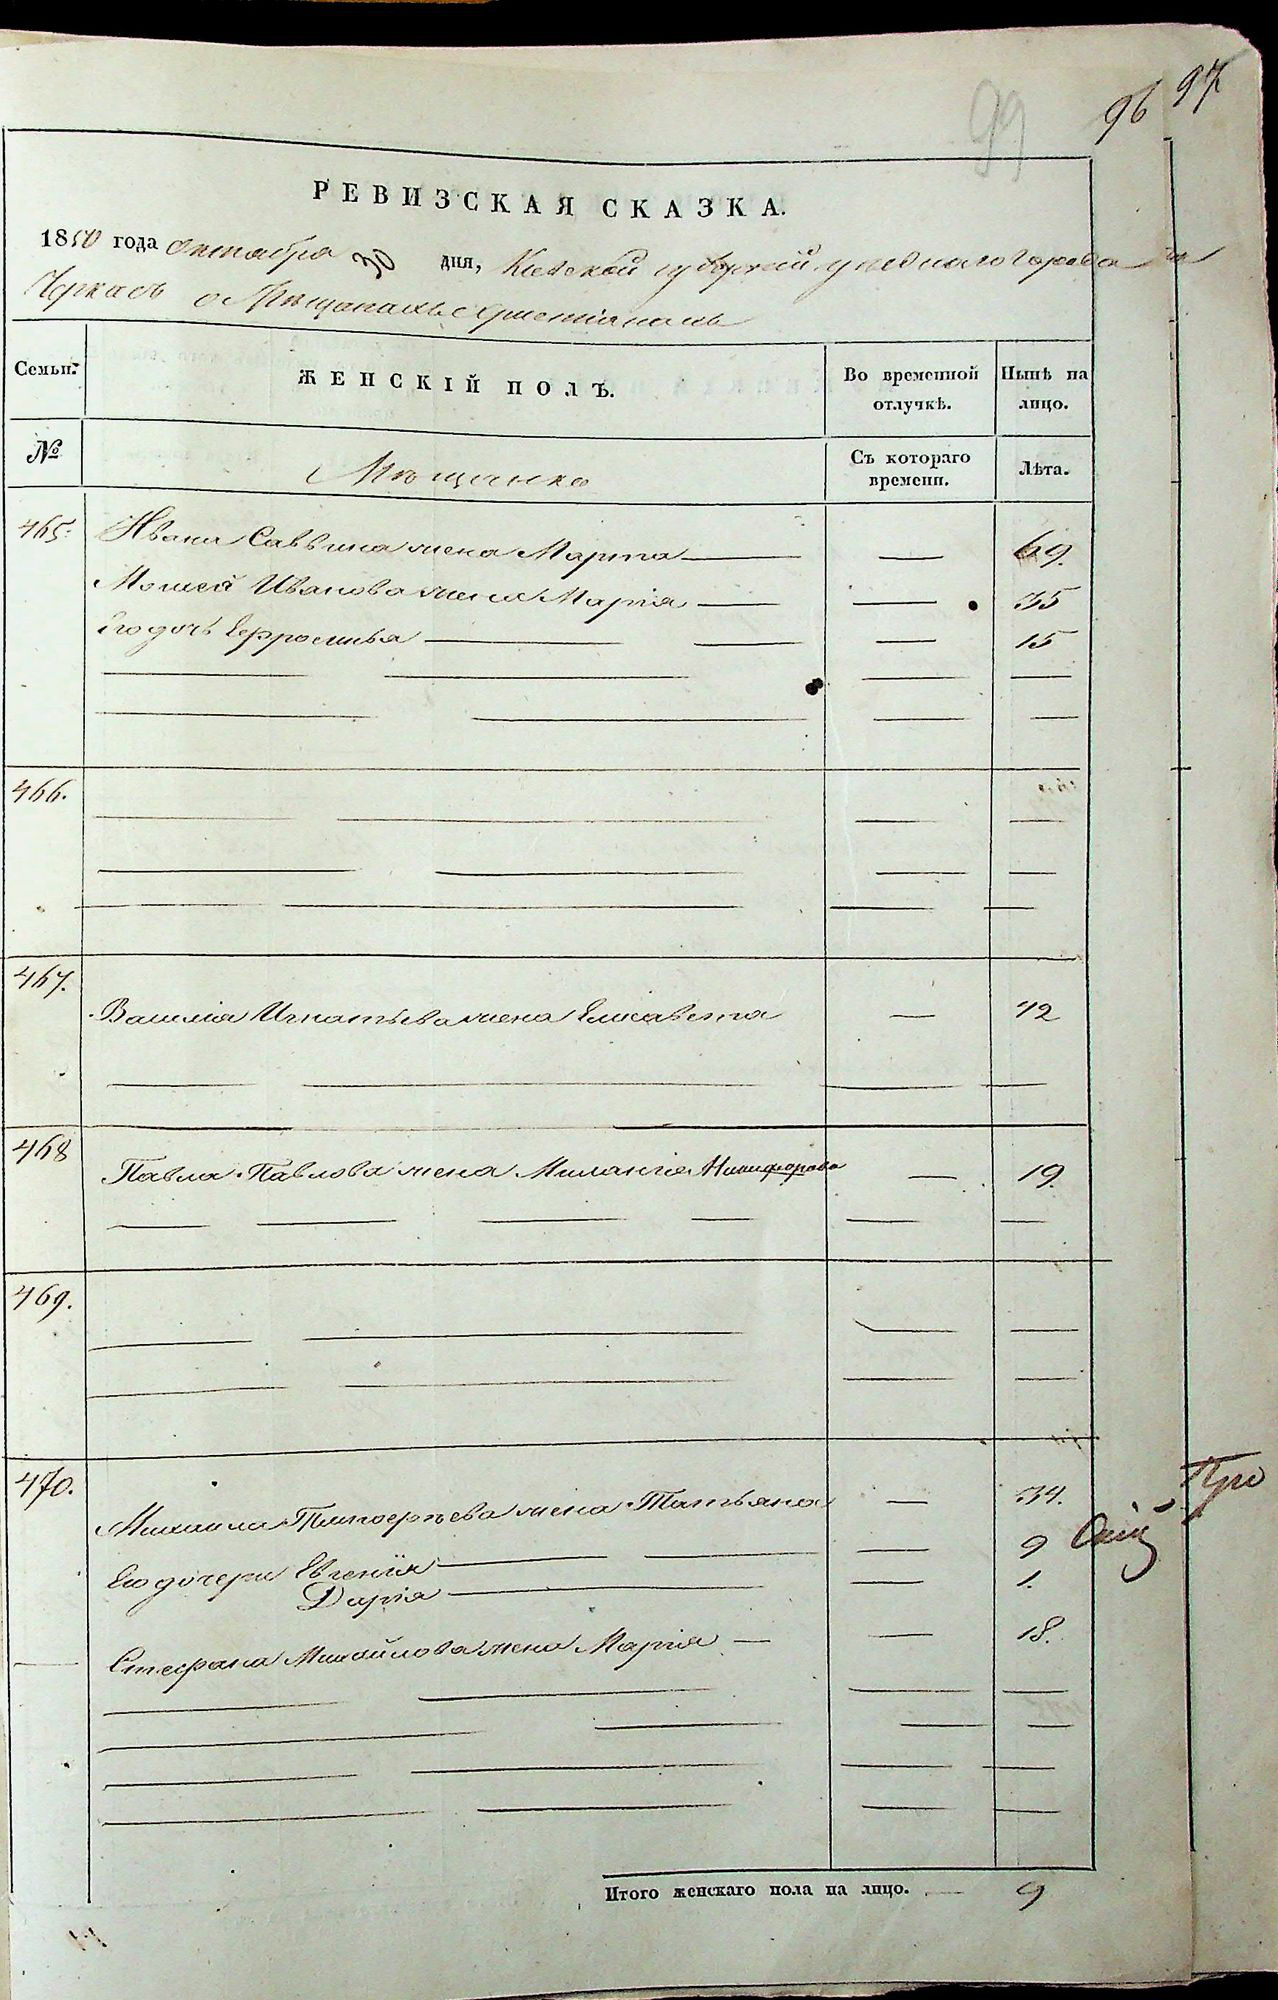 96 97
99
РЕВИЗСКАЯ СКАЗКА.
1850 года Октября 30 дня, Кіевской губерніи уезднаго города
Черкасъ о Мѣщанахъ Христіянахъ
Семьи.
ЖЕНСКІЙ ПОЛЪ.
Во временной отлучкѣ.
Нынѣ на лицо.
№
Мѣщанко
Съ котораго времени.
Лѣта.
465. Ивана Саввина жена Марта — 69.
Мойсея Иванова жена Марія — 35
Его дочь Ефросинья — 15
466.
467.
Василія Игнатьева жена Елисавета — 42
468
Павла Павлова жена Миланія Никифорова — 19.
469.
470.
Михаила жена Татьяна — 34.
Его дочери Евгенія — 9
Дарія — 1.
Стефана Михайлова жена Марія — 18.
Итого женскаго пола на лицо. — 9